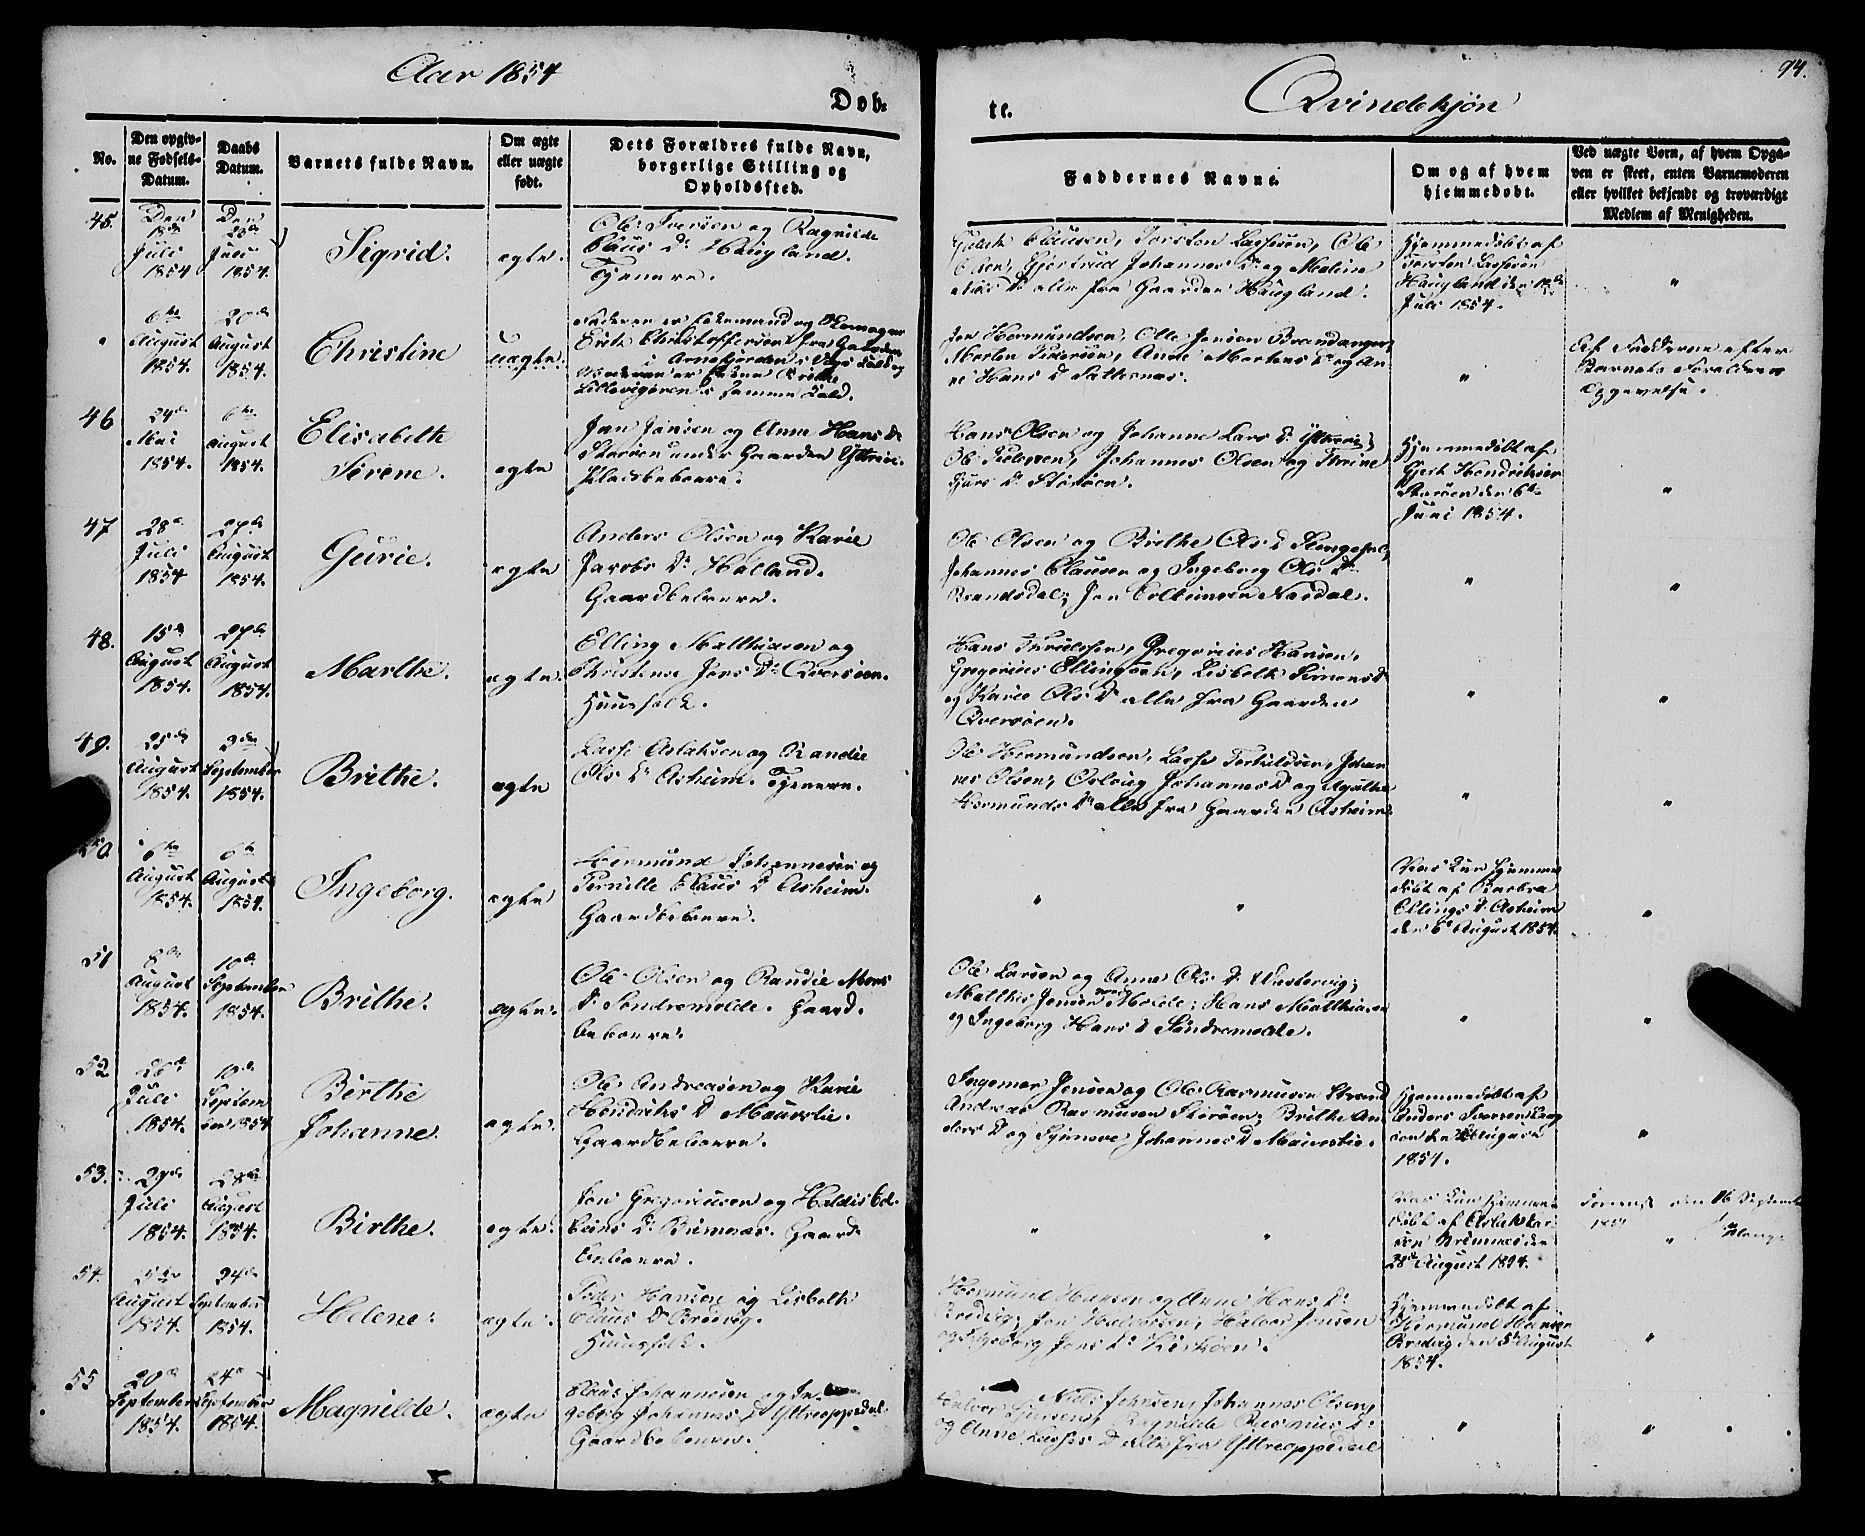 Aar 1854
Døb-
te.
Qvindekjøn
94.
No.
Den opgiv-
ne Fødsels-
Datum.
Daabs
Datum.
Barnets fulde Navn.
Om ægte
eller uægte
født.
Dets Forældres fulde Navn,
borgerlige Stilling og
Opholdssted.
Faddernes Navne.
Om og af hvem
hjemmedøbt.
Ved uægte Børn, af hvem Opga-
ven er skeet, enten Barnemoderen
eller hvilket bekjendt og troværdigt
Medlem af Menigheden.
45.
Den
18de
Juli
1854
Den
23de
Juli
1854.
Sigrid.
ægte.
Ole Iversen og Ragnilde
Claus Dr Haugland.
Tjenere.
Clausen, Torsten Lassesøn, Ole
Olsen, Gjertrud Johannes Dr og Malene
Nils Dr alle fra Gaarden Haugland.
Hjemmedøbt af
Torsten Lassesøn
Haugland den 18de
Juli 1854.
"
6te
August
1854.
20de
August
1854.
Christine
uægte.
Faderen er Enkemand og
Erik Christoffersen fra Gaarden
i Arnefjorden i Viigs Sold og
Moderen er Brithe
i samme Sold.
Jon Hermundsen, Olle Jensen Brandanger,
Merten Iversøn, Anne Mertens Dr og An-
ne Hans Dr Sattesnæs.
"
Af Fadderne efter
Barnets Forældres
Opgivelse.
46
24de
Mai
1854.
6te
August
1854.
Elisabeth
Sirene.
ægte
Jon Jonsen og Anne Hans Dr
Storøen under Gaarden Ytrevi.
Pladsbeboere.
Hans Olsen og Johanne Lars Dr Ytrevi;
Ole Pedersen, Johannes Olsen og Thrine
Dr Storøen.
Hjemmedøbt af
Gjert Hendriksen
Storøen den 6te
Juni 1854.
"
47
28de
Juli
1854
27de
August
1854.
Gurie.
ægte
Anders Olsen og Karie
Jacobs Dr Hålland.
Gaardbeboere.
Ole Olsen og Brithe Ols Dr
Johannes Clausen og Ingeborg Ols Dr
Brandsdal; Jon Nordal.
"
"
48.
15de
August
1854.
27de
August
1854.
Marthe.
ægte.
Elling Matthiasen og
Christense Jens Dr Qversøen.
Huusfolk.
Hans Truelssen, Gregorius Hansen,
Gregorius Ellingsen, Lisbeth Simens Dr
og Karie Ols Dr alle fra Gaarden
Qversøen.
"
"
49.
25de
August
1854.
3die
September
1854.
Brithe.
ægte
Lasse Aslaksen og Randie
Ols Dr Asheim. Tjenere.
Ole Hermundsen, Lasse Torkildsen, Johan-
nes Olsen, Oslaug Johannes Dr og Agathe
Hermunds Dr alle fra Gaarden Asheim.
"
"
50
6te
August
1854.
6te
August
1854.
Ingeborg.
ægte
Hermund Johannesen og
Pernille Claus Dr Asheim.
Gaardbeboere.
"
"
Var kun hjemme-
døbt af Barbra
Ellings Dr Asheim
den 6te August 1854.
"
51
8de
August
1854.
10de
September
1854.
Brithe.
ægte.
Ole Olsen og Randie Mons
Dr Søndremolde. Gaard-
beboere.
Ole Larsen og Anne Ols Dr Undervig;
Matthis Jensen Molde; Hans Matthiasen
og Ingeborg Hans Dr Søndremolde.
"
"
52
26de
Juli
1854.
10de
Septem-
ber 1854
Birthe
Johanne.
ægte.
Ole Andreasen og Karie
Hendriks Dr Maurstie.
Gaardbeboere.
Ingemar Jensen og Ole Rasmusen Strand
Andreas Rasmusen Storøen; Brithe An-
ders Dr og Synneve Johannes Dr Maurstie.
Hjemmedøbt af
Anders Iversen
den August
1854.
"
53.
27de
Juli
1854.
28de
August
1854.
Birthe.
ægte.
Jon Gregoriusen og Haldis Col-
beins Dr Brimnæs. Gaard-
beboere.
"
"
Var kun hjemme-
døbt af Aslak Lar-
sen Brimnæs den
28de August 1854.
den 16 September
"
54.
5te
August
1854.
24de
September
1854.
Helene.
ægte.
Peder Hansen og Lisbeth
Claus Dr Bredvig.
Huusfolk.
Hermund Hansen og Anne Hans Dr
Bredvig; Jon Halvorsen, Halvor Jensen
og Ingeborg Jons Dr Kirkøen.
Hjemmedøbt af
Hermund Hansen
Bredvig den 5te August
1854.
"
55
20de
September
1854.
24de
September
1854.
Magnilde.
ægte
Claus Johannesen og In-
geborg Johannes Dr Yttreoppedal.
Gaardbeboere.
Niels Johnsen, Johannes Olsen,
Halvor Iversen, Ragnilde Rasmus Dr
og Anne Lasses Dr alle fra Yttreoppedal
"
"